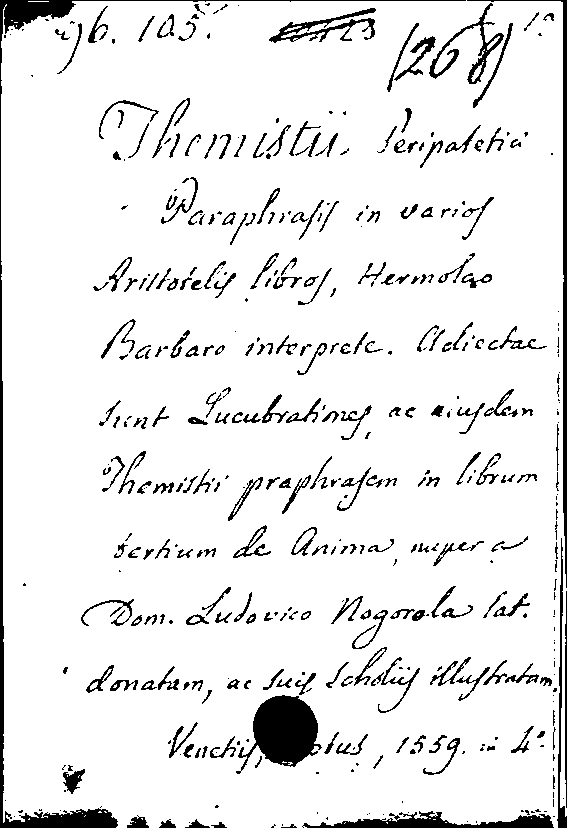 96. 105. (268) 1a
Themistii Peripatetici
Paraphrasis in varios
Aristotelis libros, Hermolao
Barbaro interprete. Adiectae
sunt Lucubrationes, ac eiusdem
Themistii praphrasem in librum
tertium de Anima, nuper a
Dom. Ludovico Nogorola lat.
donatam, ac suis Scholiis illustratam.
Venetiis, 1559. in 4°